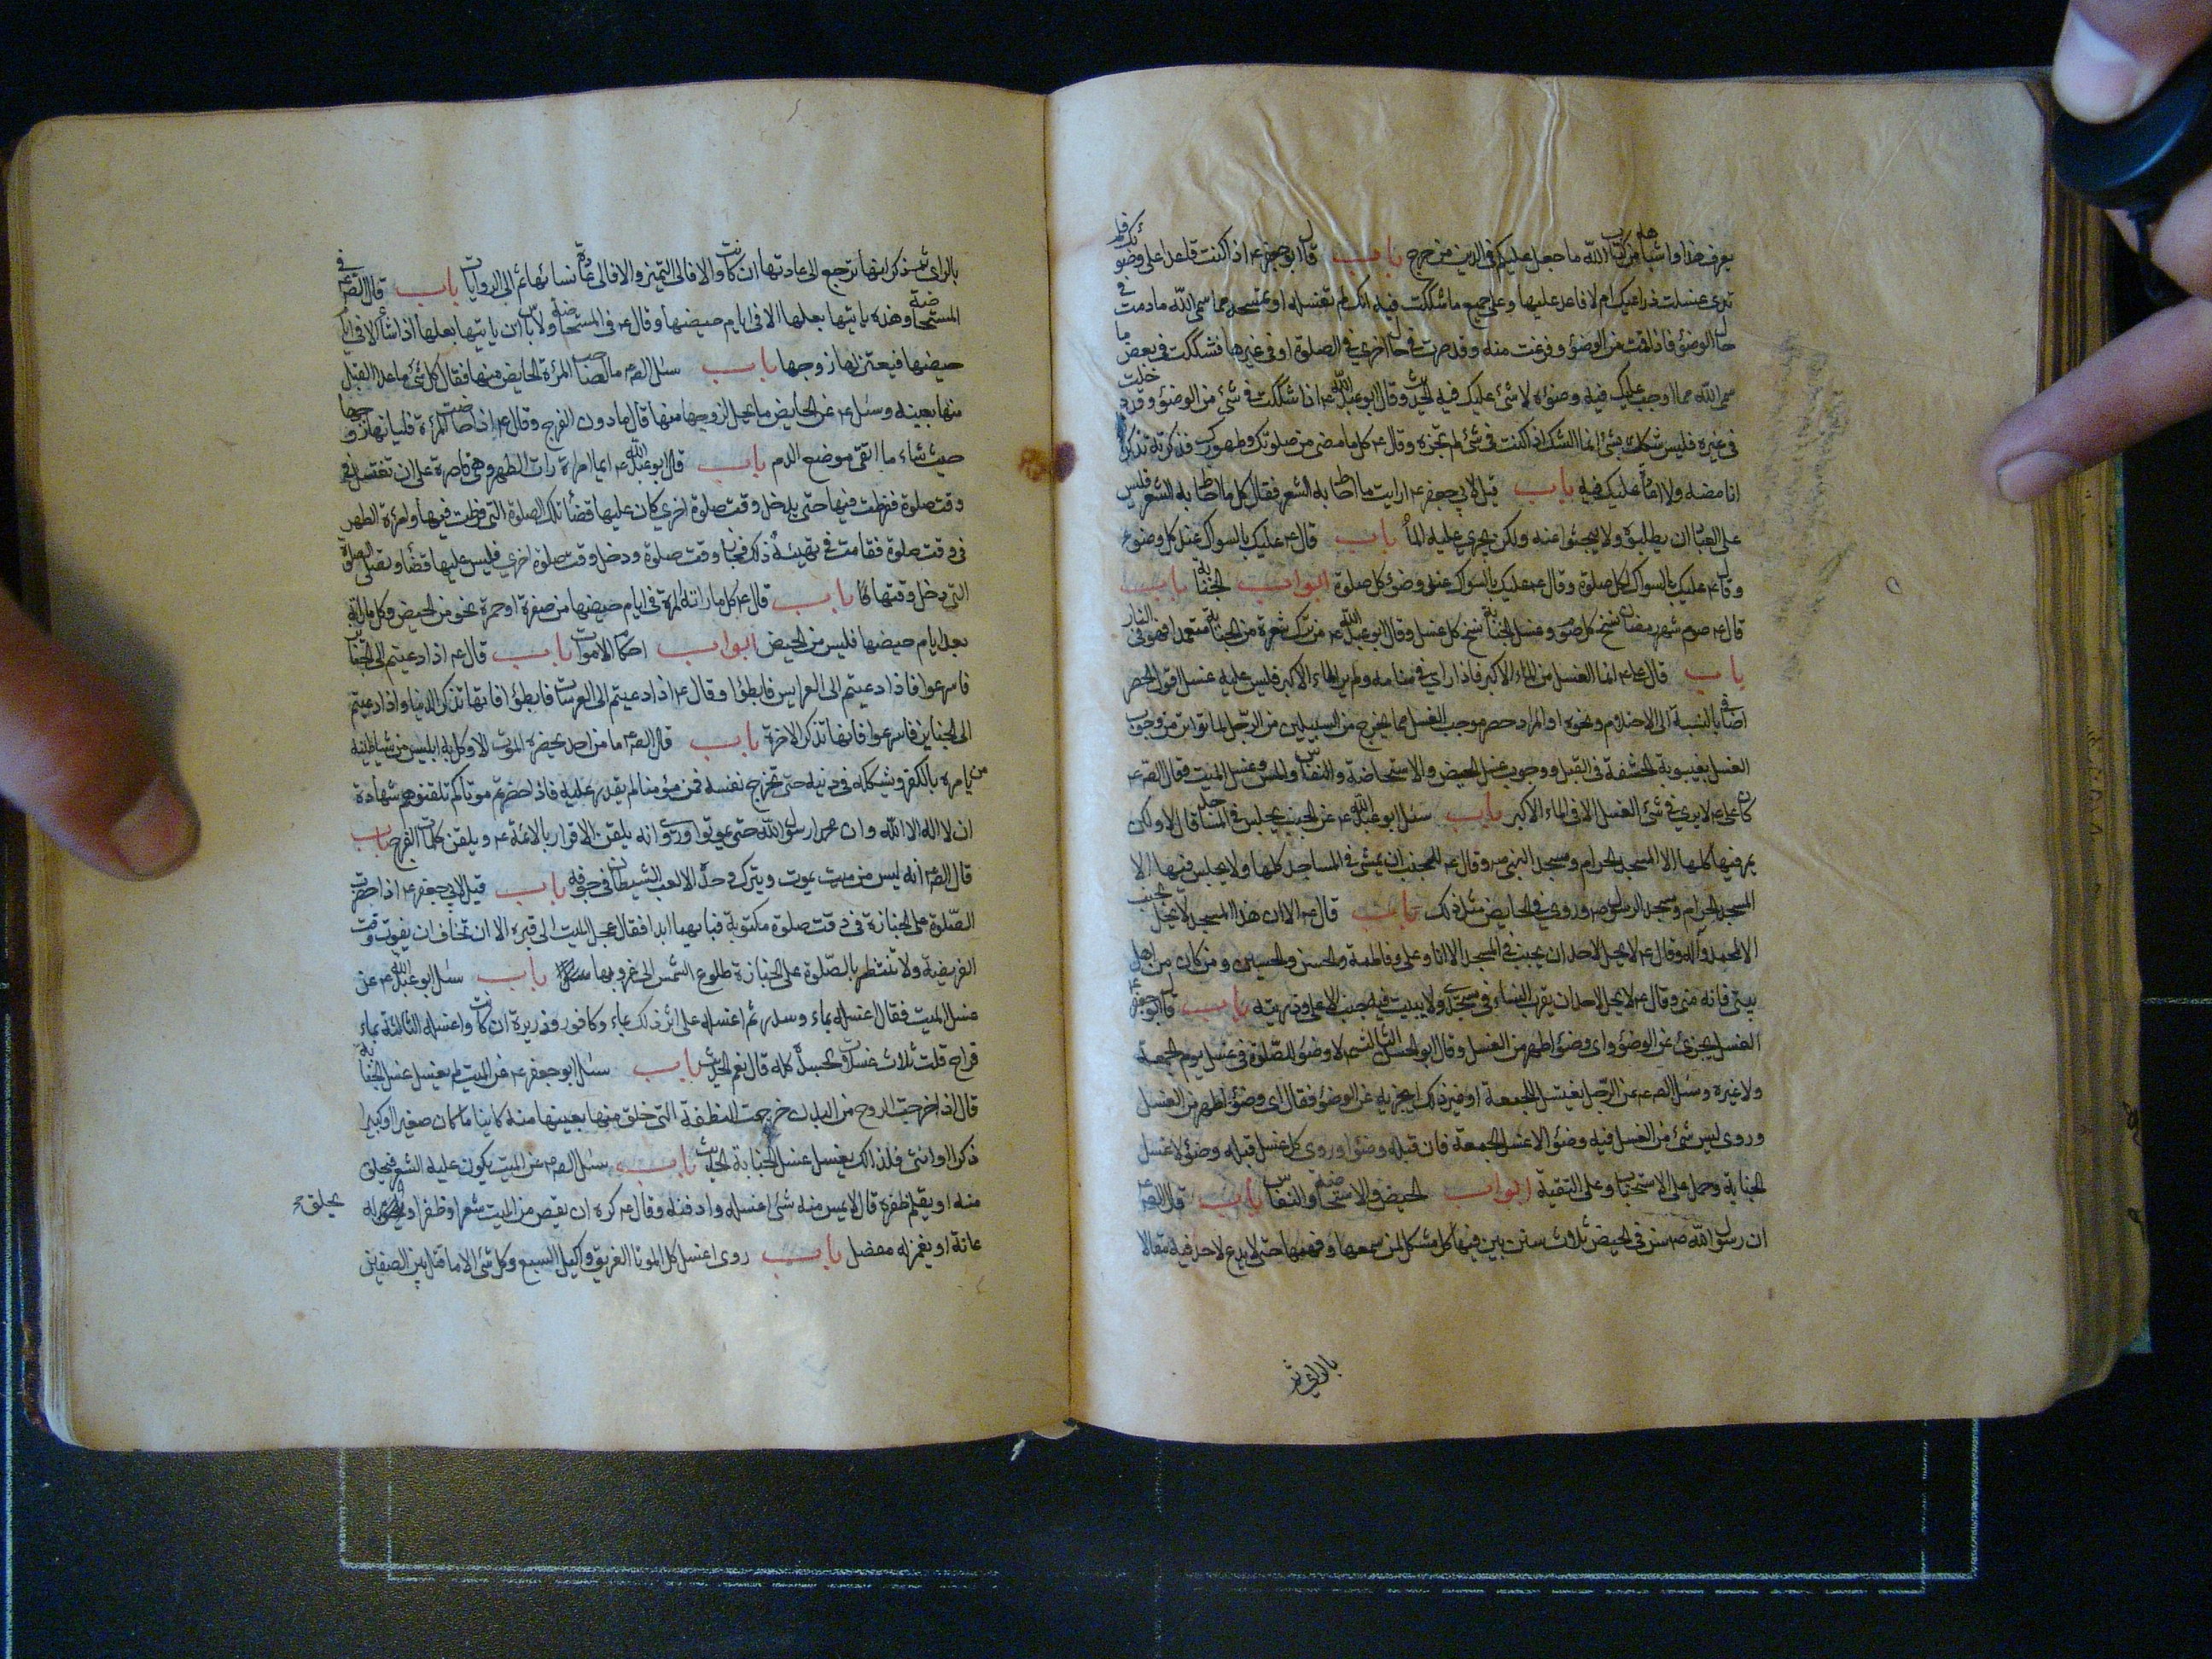 يعرف هذا واشباهه من كتاب الله ما جعل عليكم في الدين من حرج باب قال ابو جعفر ع اذا كنت قاعدا على وضوئك فلم
تدرى غسلت ذراعيك ام لا فاعد عليهما وعلى جميع ما شككت فيه انك لم تغسله او تمسحه مما سمى الله ما دمت في
حال الوضوء فاذا قمت من الوضوء وفرغت منه وقد صرت في حال اخرى في الصلوة او في غيرها فشككت في بعض ما
سمى الله مما اوجب عليك فيه وضوئه لا شئ عليك فيه الحديث وقال ابو عبد الله ع اذا شككت في شئ من الوضوء وقد دخلت
في غيره فليس شكك بشئ انما الشك اذا كنت في شئ لم تجزه وقال ع كل ما مضى من صلوتك وطهورك فذكرته تذكرا
فامضه ولا اعادة عليك فيه باب قيل لابي جعفر ع ارايت ما احاط به الشعر فقال كل ما احاط به الشعر فليس
على العباد ان يطلبوه ولا يبحثوا عنه ولكن يجرى عليه الماء باب قال ع عليك بالسواك عند كل وضوء
وقال ع عليك بالسواك لكل صلوة وقال ع عليك بالسواك عند وضوء كل صلوة ابواب الجنابة باب
قال ع صوم شهر رمضان نسخ كل صوم وغسل الجنابة نسخ كل غسل وقال ابو عبد الله ع من ترك شعرة من الجنابة متعمدا فهو في النار
باب قال على ع انما الغسل من الماء الاكبر فاذا راى في منامه ولم ير الماء الاكبر فليس عليه غسل اقول الحصر
اضافى بالنسبة الى الاحتلام ونحوه او المراد حصر موجب الغسل مما يخرج من السبيلين من الرجل لما تواتر من وجوب
الغسل بغيبوبة الحشفة في القبل ووجوب غسل الحيض والاستحاضة والنفاس والمس وغسل الميت وقال الص ع
كان على ع لا يرى في شئ الغسل الا في الماء الاكبر باب سئل ابو عبد الله ع عن الجنب يجلس في المساجد قال لا ولكن
يمر فيها كلها الا المسجد الحرام ومسجد النبي ص وقال ع للجنب ان يمشى في المساجد كلها ولا يجلس فيها الا
المسجد الحرام ومسجد الرسول ص وروى في الحايض مثل ذلك باب قال ع الا ان هذا المسجد لا يحل لجنب
الا لمحمد وآله وقال ع لا يحل لاحد ان يجنب في المسجد الا انا وعلى وفاطمة والحسن والحسين ومن كان من اهل
بيتى فانه منى وقال ع لا يحل لاحد ان يقرب النساء في مسجدى ولا يبيت فيه جنب الا على وذريته باب قال ابو جعفر ع
الغسل يجزى عن الوضوء واى وضوء اطهر من الغسل وقال ابو الحسن الثالث ع لا وضوء للصلوة في غسل يوم الجمعة
ولا غيره وسئل الص ع عن الرجل يغتسل للجمعة او غير ذلك ايجزيه عن الوضوء فقال اى وضوء اطهر من الغسل
وروى ليس شئ من الغسل فيه وضوء الا غسل الجمعة فان قبله وضوءا وروى كل غسل قبله وضوء الا غسل
الجنابة وحمل على الاستحباب وعلى التقية ابواب الحيض والاستحاضة والنفاس باب قال الص ع
ان رسول الله ص سن في الحيض ثلاث سنن بين فيها كل مشكل لمن سمعها وفهمها حتى لا يدع لاحد فيه مقالا
بالراى ثم
بالراى ثم ذكر انها ترجع الى عادتها ان كانت والا فالى التميز والا فالى عادة نسائها ثم الى الروايات باب قال الص ع في
المستحاضة وهذه ياتيها بعلها الا في ايام حيضها وقال ع في المستحاضة ولا باس ان ياتيها بعلها اذا شاء الا في ايام
حيضها فيعتزلها زوجها باب سئل الص ع ما لصاحب المرئة الحايض منها فقال كل شئ ما عدا القبل
منها بعينه وسئل ع عن الحايض ما يحل لزوجها منها قال ما دون الفرج وقال ع اذا حاضت المرئة فلياتها زوجها
حيث شاء ما اتقى موضع الدم باب قال ابو عبد الله ع ايما امراة رات الطهر وهي قادرة على ان تغتسل في
وقت صلوة ففرطت فيها حتى يدخل وقت صلوة اخرى كان عليها قضاء تلك الصلوة التى فرطت فيها وان رات الطهر
في وقت صلوة فقامت في تهيئة ذلك فجاز وقت صلوة ودخل وقت صلوة اخرى فليس عليها قضاء وتصلى الصلوة
التى دخل وقتها باب قال ع كل ما راته المرئة في ايام حيضها من صفرة او حمرة فهو من الحيض وكل ما راته
بعد ايام حيضها فليس من الحيض ابواب احكام الاموات باب قال ع اذا دعيتم الى الجنايز
فاسرعوا فاذا دعيتم الى العرايس فابطؤا وقال ع اذا دعيتم الى العرسات فابطؤا فانها تذكر الدنيا واذا دعيتم
الى الجنايز فاسرعوا فانها تذكر الاخرة باب قال الص ع ما من احد يحضره الموت الا وكل به ابليس من شياطينه
من يامره بالكفر ويشككه في دينه حتى تخرج نفسه فمن كان مؤمنا لم يقدر عليه فاذا حضرتم موتاكم فلقنوهم شهادة
ان لا اله الا الله وان محمدا رسول الله حتى يموتوا وروى انه يلقن الاقرار بالائمة ع ويلقن كلمات الفرج باب
قال الص ع انه ليس من ميت يموت ويترك وحده الا لعب الشيطان في جوفه باب قيل لابي جعفر ع اذا حضرت
الصلوة على الجنازة في وقت صلوة مكتوبة فبايهما ابدا فقال عجل الميت الى قبره الا ان تخاف ان يفوت وقت
الفريضة ولا تنتظر بالصلوة على الجنازة طلوع الشمس الى غروبها باب سئل ابو عبد الله ع عن
غسل الميت فقال اغسله بماء وسدر ثم اغسله على اثر ذلك بماء وكافور وذريرة ان كانت واغسله الثالثة بماء
قراح قلت ثلاث غسلات لجسده كله قال نعم الحديث باب سئل ابو جعفر ع عن الميت لم يغسل غسل الجنابة
قال اذا خرجت الروح من البدن خرجت النطفة التى خلق منها بعينها منه كاينا ما كان صغيرا او كبيرا
ذكرا او انثى فلذلك يغسل غسل الجنابة الحديث باب سئل الص ع عن الميت يكون عليه الشعر فيحلق
منه او يقلم ظفره قال لا يمس منه شئ اغسله وادفنه وقال ع كره ان يقص من الميت شعر او ظفر او يحلق له
يحلق
عانة او يغمز له مفصل باب روى اغسل كل الموتى الغريق واكيل السبع وكل شئ الا ما قتل بين الصفين